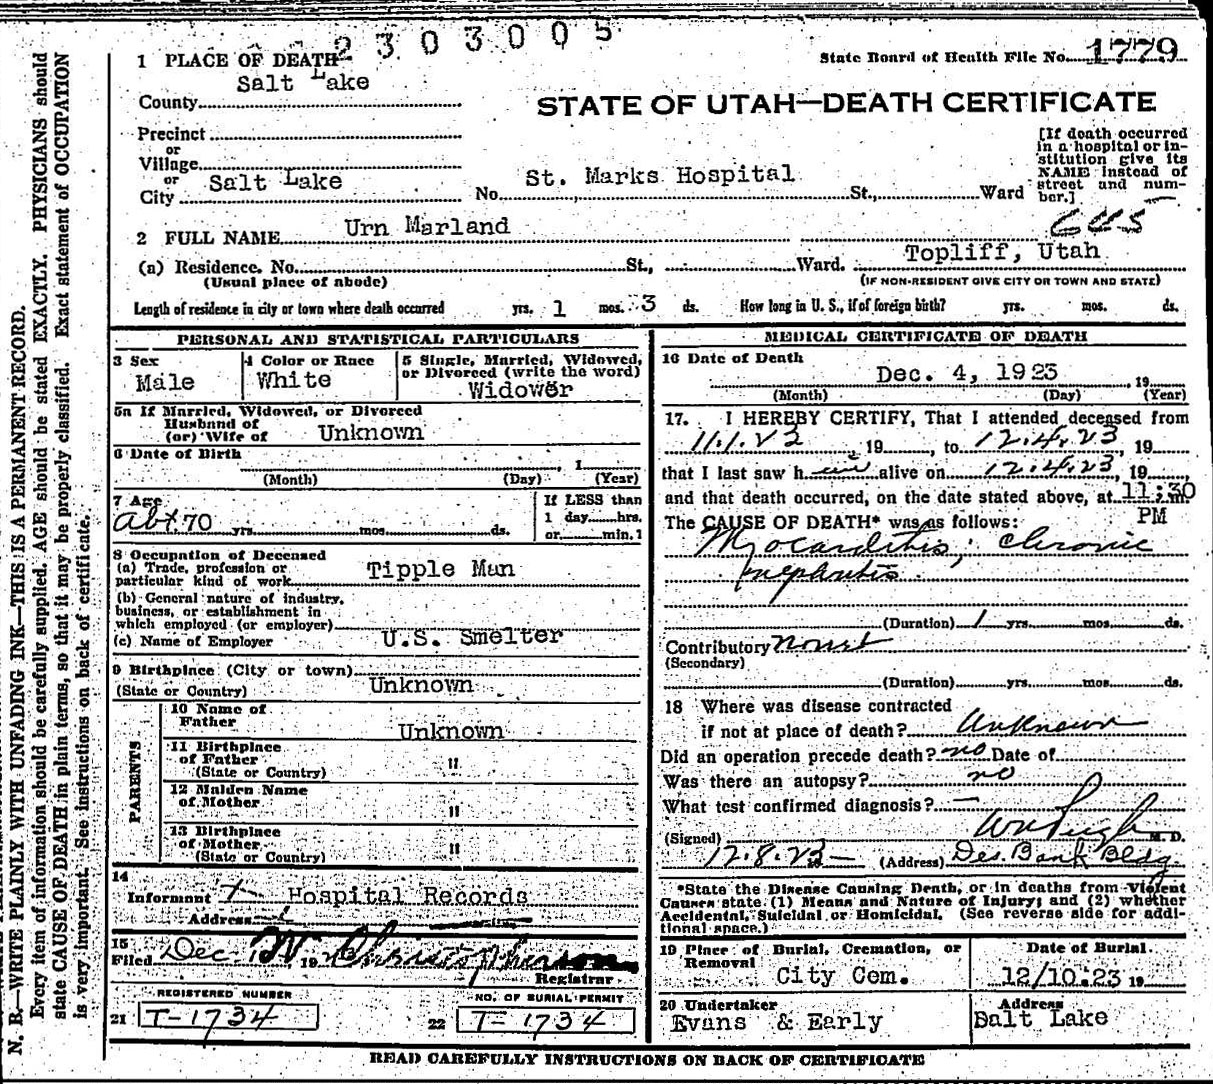 2303005
1 PLACE OF DEATH
State Board of Health File No. 1779
County Salt Lake
STATE OF UTAH—DEATH CERTIFICATE
Precinct
or
Village
or
City Salt Lake No. St. Marks Hospital St., Ward
[If death occurred
in a hospital or in-
stitution give its
NAME instead of
street and num-
ber.]
2 FULL NAME Urn Marland
645
(a) Residence. No. St., Ward. Topliff, Utah
(Usual place of abode) (IF NON-RESIDENT GIVE CITY OR TOWN AND STATE)
Length of residence in city or town where death occurred yrs. 1 mos. 3 ds. How long in U. S., if of foreign birth? yrs. mos. ds.
PERSONAL AND STATISTICAL PARTICULARS
3 Sex Male
4 Color or Race White
5 Single, Married, Widowed,
or Divorced (write the word)
Widower
5a If Married, Widowed, or Divorced
Husband of
(or) Wife of Unknown
6 Date of Birth
, 1
(Month) (Day) (Year)
7 Age
abt. 70 yrs. mos. ds.
If LESS than
1 day hrs.
or min. 1
8 Occupation of Deceased
(a) Trade, profession or
particular kind of work Tipple Man
(b) General nature of industry,
business, or establishment in
which employed (or employer)
(c) Name of Employer U.S. Smelter
9 Birthplace (City or town)
(State or Country) Unknown
PARENTS
10 Name of
Father Unknown
11 Birthplace
of Father "
(State or Country)
12 Maiden Name
of Mother "
13 Birthplace
of Mother "
(State or Country)
14
Informant Hospital Records
Address
15
Filed Dec. 19 Christopherson
Registrar
REGISTERED NUMBER
21 T-1734
NO. OF BURIAL PERMIT
22 T-1734
MEDICAL CERTIFICATE OF DEATH
16 Date of Death
Dec. 4, 1923 , 19
(Month) (Day) (Year)
17. I HEREBY CERTIFY, That I attended deceased from
11.1.23 , 19 , to 12.4.23 , 19
that I last saw h alive on 12.4.23 , 19
and that death occurred, on the date stated above, at 11:30 m.
PM
The CAUSE OF DEATH* was as follows:
Myocarditis; chronic
nephritis
(Duration) 1 yrs. mos. ds.
Contributory
(Secondary)
(Duration) yrs. mos. ds.
18 Where was disease contracted
if not at place of death? Unknown
Did an operation precede death? no Date of
Was there an autopsy? no
What test confirmed diagnosis? —
(Signed) M. D.
12.8.23 (Address) Des. Bank Bldg
*State the Disease Causing Death, or in deaths from Violent
Causes state (1) Means and Nature of Injury; and (2) whether
Accidental, Suicidal or Homicidal. (See reverse side for addi-
tional space.)
19 Place of Burial, Cremation, or
Removal
City Cem.
Date of Burial
12/10.23 19
20 Undertaker
Evans & Early
Address
Salt Lake
READ CAREFULLY INSTRUCTIONS ON BACK OF CERTIFICATE
N. B.—WRITE PLAINLY WITH UNFADING INK—THIS IS A PERMANENT RECORD.
Every item of information should be carefully supplied. AGE should be stated EXACTLY. PHYSICIANS should
state CAUSE OF DEATH in plain terms, so that it may be properly classified. Exact statement of OCCUPATION
is very important. See instructions on back of certificate.